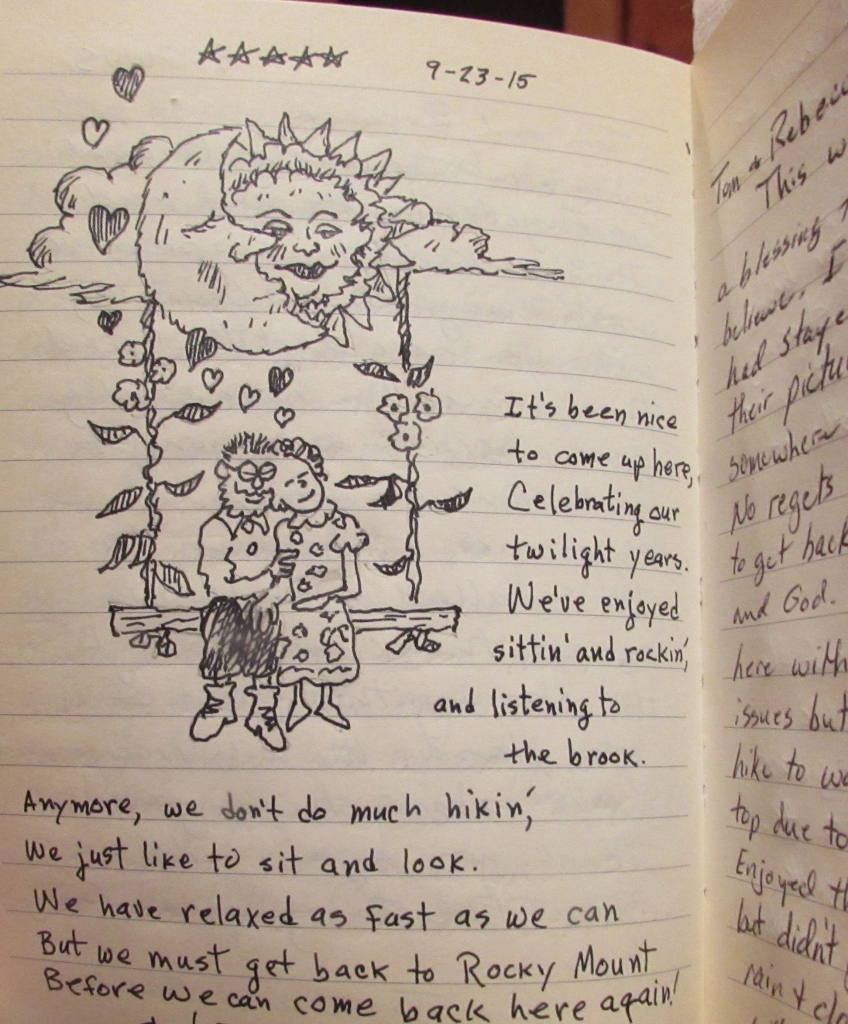 ☆☆☆☆☆ 9-23-15
It's been nice
to come up here,
Celebrating our
twilight years.
We've enjoyed
sittin' and rockin',
and listening to
the brook.
Anymore, we don't do much hikin',
We just like to sit and look.
We have relaxed as fast as we can
But we must get back to Rocky Mount
Before we can come back here again!
Tom &
This
a blessing
believe. I
had
their
somewhere
No regets
to get back
and God.
here with
issues but
hike to
top due to
Enjoyed
but didn't
rain &